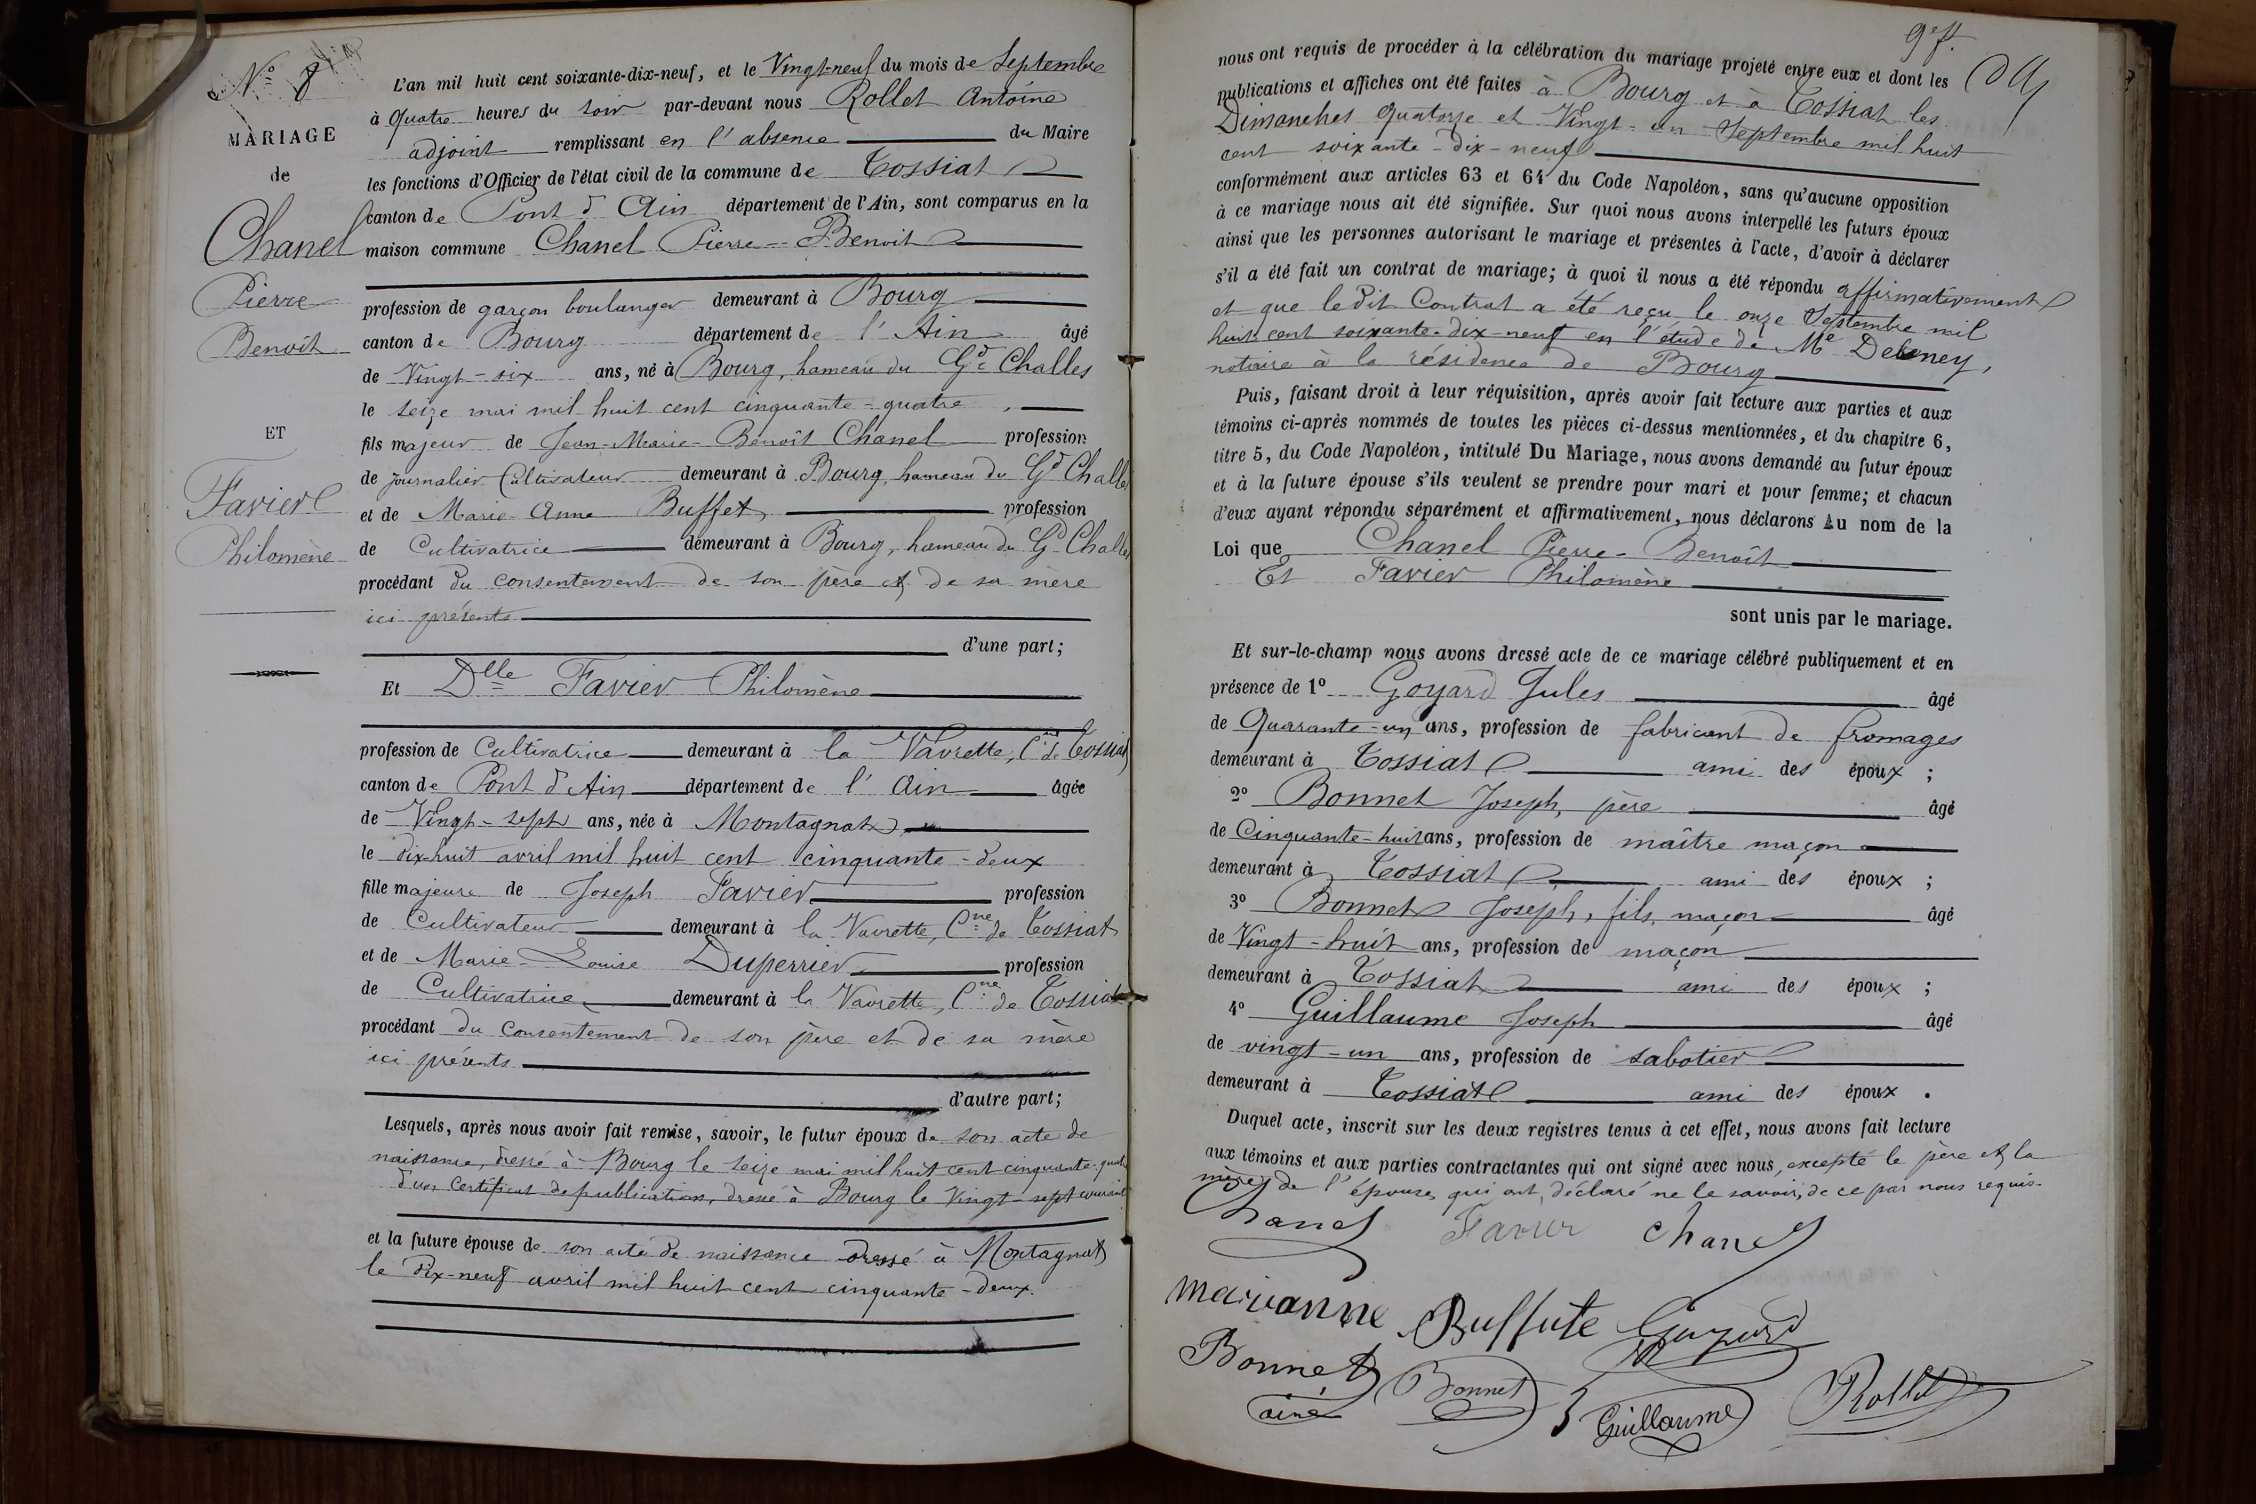 N° 8
MARIAGE
de
Chanel
Pierre
Benoît
ET
Favier
Philomène
L'an mil huit cent soixante-dix-neuf, et le Vingt-neuf du mois de Septembre
à Quatre heures du soir par-devant nous Rollet Antoine
adjoint remplissant en l'absence du Maire
les fonctions d'Officier de l'état civil de la commune de Tossiat
canton de Pont d'Ain département de l'Ain, sont comparus en la
maison commune Chanel Pierre-Benoit
profession de garçon boulanger demeurant à Bourg
canton de Bourg département de l'Ain âgé
de Vingt-six ans, né à Bourg, hameau du Gd Challes
le seize mai mil huit cent cinquante-quatre,
fils majeur de Jean-Marie-Benoît Chanel profession
de journalier Cultivateur demeurant à Bourg, hameau du Gd Challes
et de Marie-Anne Buffet profession
de Cultivatrice demeurant à Bourg, hameau du Gd Challes
procédant du consentement de son père et de sa mère
ici présents
d'une part;
Et Dlle Favier Philomène
profession de Cultivatrice demeurant à la Vavrette, Cne de Tossiat
canton de Pont d'Ain département de l'Ain âgée
de Vingt-sept ans, née à Montagnat
le dix-huit avril mil huit cent cinquante-deux
fille majeure de Joseph Favier profession
de Cultivateur demeurant à la Vavrette, Cne de Tossiat
et de Marie-Louise Duperrier profession
de Cultivatrice demeurant à la Vavrette, Cne de Tossiat
procédant du consentement de son père et de sa mère
ici présents
d'autre part;
Lesquels, après nous avoir fait remise, savoir, le futur époux de son acte de
naissance, dressé à Bourg le seize mai mil huit cent cinquante-quatre
d'un certificat de publication, dressé à Bourg le Vingt-sept courant
et la future épouse de son acte de naissance dressé à Montagnat
le dix-neuf avril mil huit cent cinquante-deux.
9e f.
nous ont requis de procéder à la célébration du mariage projeté entre eux et dont les
publications et affiches ont été faites à Bourg et à Tossiat les
Dimanches quatorze et Vingt-un Septembre mil huit
cent soixante-dix-neuf
conformément aux articles 63 et 64 du Code Napoléon, sans qu'aucune opposition
à ce mariage nous ait été signifiée. Sur quoi nous avons interpellé les futurs époux
ainsi que les personnes autorisant le mariage et présentes à l'acte, d'avoir à déclarer
s'il a été fait un contrat de mariage; à quoi il nous a été répondu affirmativement
et que ledit Contrat a été reçu le onze Septembre mil
huit cent soixante-dix-neuf en l'étude de Me
notaire à la résidence de Bourg
Puis, faisant droit à leur réquisition, après avoir fait lecture aux parties et aux
témoins ci-après nommés de toutes les pièces ci-dessus mentionnées, et du chapitre 6,
titre 5, du Code Napoléon, intitulé Du Mariage, nous avons demandé au futur époux
et à la future épouse s'ils veulent se prendre pour mari et pour femme; et chacun
d'eux ayant répondu séparément et affirmativement, nous déclarons Au nom de la
Loi que Chanel Pierre-Benoît
Et Favier Philomène
sont unis par le mariage.
Et sur-le-champ nous avons dressé acte de ce mariage célébré publiquement et en
présence de 1° Goyard Jules âgé
de Quarante-un ans, profession de fabricant de fromages
demeurant à Tossiat ami des époux ;
2° Bonnet Joseph, père âgé
de Cinquante-huit ans, profession de maître maçon
demeurant à Tossiat ami des époux ;
3° Bonnet Joseph, fils, maçon âgé
de Vingt-huit ans, profession de maçon
demeurant à Tossiat ami des époux ;
4° Guillaume Joseph âgé
de vingt-un ans, profession de sabotier
demeurant à Tossiat ami des époux .
Duquel acte, inscrit sur les deux registres tenus à cet effet, nous avons fait lecture
aux témoins et aux parties contractantes qui ont signé avec nous, excepté le père et la
mère de l'épouse, qui ont déclaré ne le savoir, de ce par nous requis.
Chanel Favier Chanel
marianne Buffute Goyard
Bonnet Bonnet Guillaume Rollet
ainé